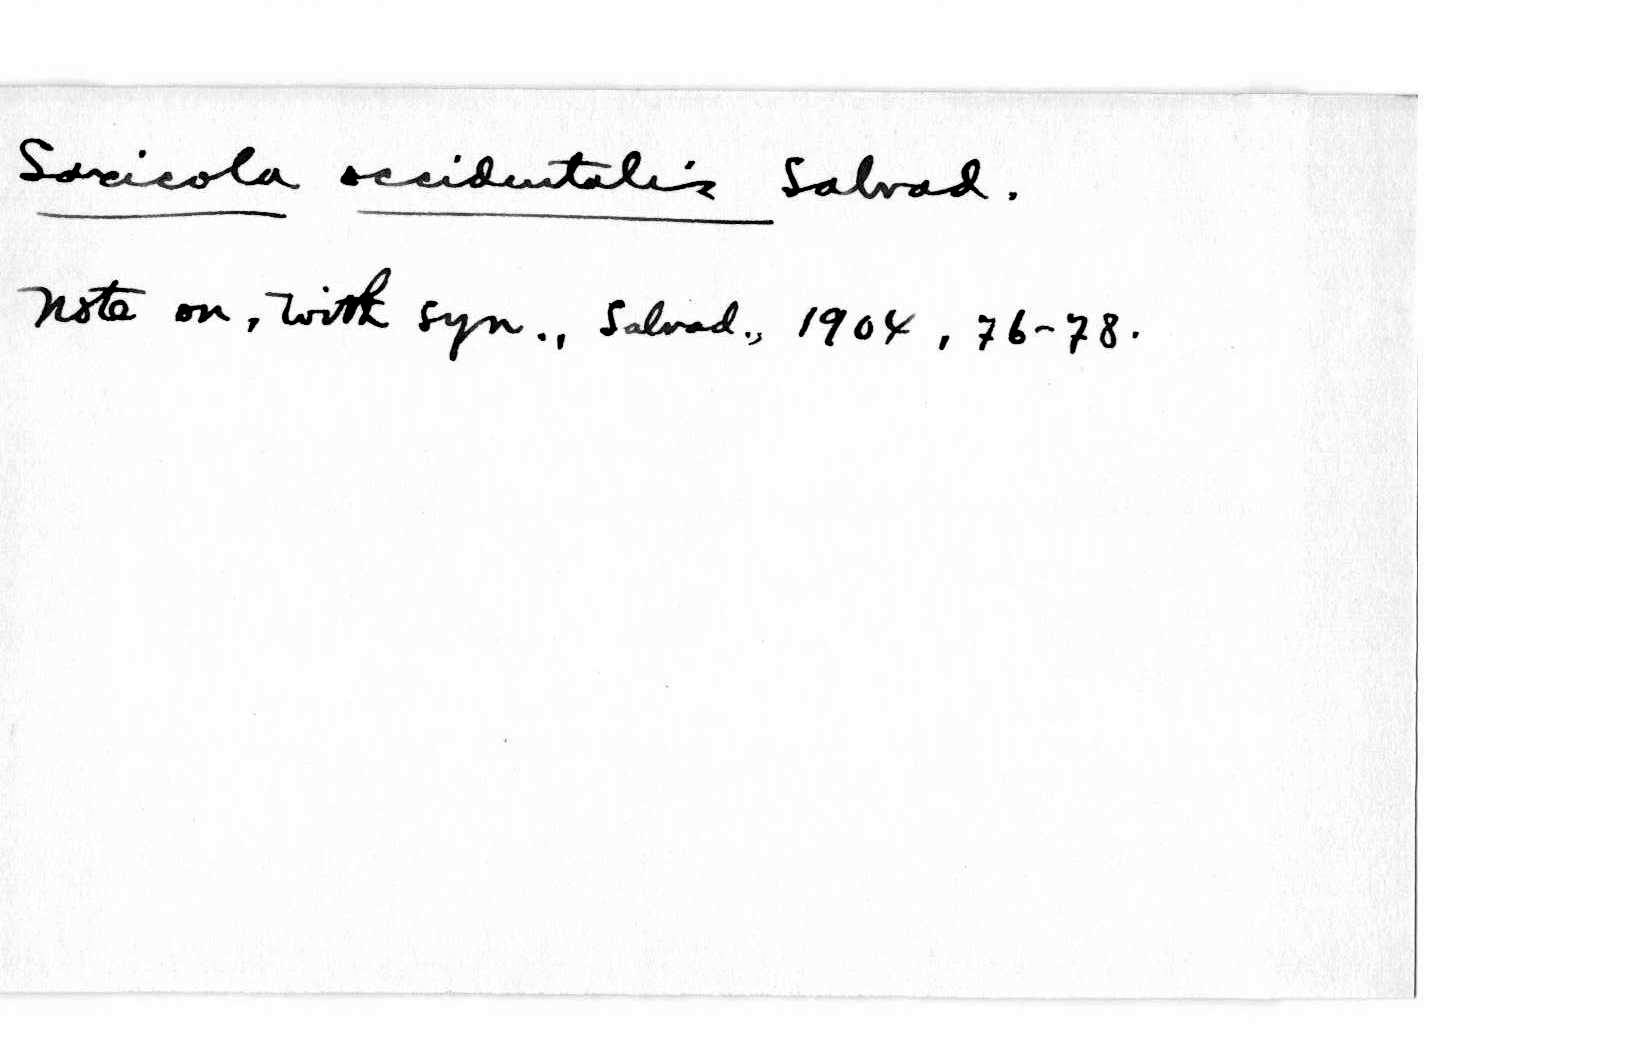 Saxicola occidentalis Salvad.
Note on, with syn., Salvad., 1904, 76-78.